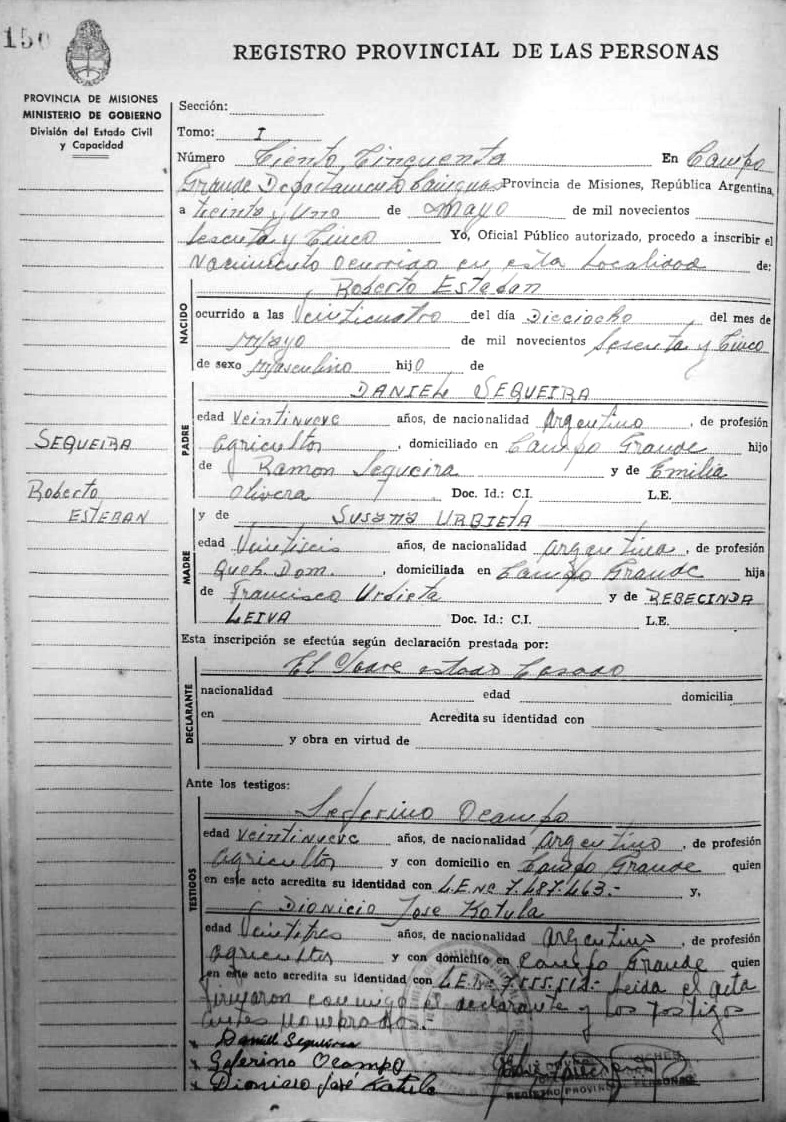 150
REGISTRO PROVINCIAL DE LAS PERSONAS
PROVINCIA DE MISIONES
MINISTERIO DE GOBIERNO
División del Estado Civil
y Capacidad
Sección:
Tomo: I
Número Ciento Cincuenta En Campo
Grande Departamento Cainguas Provincia de Misiones, República Argentina,
a treinta y Uno de Mayo de mil novecientos
Sesenta y Cinco Yo, Oficial Público autorizado, procedo a inscribir el
Nacimiento Ocurrido en esta Localidad de:
Roberto Esteban
NACIDO
ocurrido a las Veinticuatro del día Dieciocho del mes de
Mayo de mil novecientos Sesenta y Cinco
de sexo Masculino hijo de
DANIEL SEQUEIRA
PADRE
edad Veintinueve años, de nacionalidad Argentino, de profesión
Agricultor, domiciliado en Campo Grande hijo
de Ramon Sequeira y de Emilia
Olivera Doc. Id.: C.I. L.E.
SEQUEIRA
Roberto
ESTEBAN
y de SUSANA URBIETA
MADRE
edad Veintiseis años, de nacionalidad Argentina, de profesión
Queh. Dom., domiciliada en Campo Grande hija
de Francisco Urbieta y de REBECINDA
LEIVA Doc. Id.: C.I. L.E.
Esta inscripción se efectúa según declaración prestada por:
El Padre estado Casado
DECLARANTE
nacionalidad edad domicilia
en Acredita su identidad con
y obra en virtud de
Ante los testigos:
Seferino Ocampo
TESTIGOS
edad Veintinueve años, de nacionalidad Argentino, de profesión
Agricultor y con domicilio en Campo Grande quien
en este acto acredita su identidad con L.E. Nº 7.487.463.- y,
Dionicio Jose Katula
edad Veintitres años, de nacionalidad Argentino, de profesión
Agricultor y con domicilio en Campo Grande quien
en este acto acredita su identidad con L.E. Nº 7.555.512.- Leida el acta
firmaron conmigo el declarante y los testigos
antes nombrados.-
Daniel Sequeira
Seferino Ocampo
Dionicio José Katula
REGISTRO PROVINCIAL PERSONAS